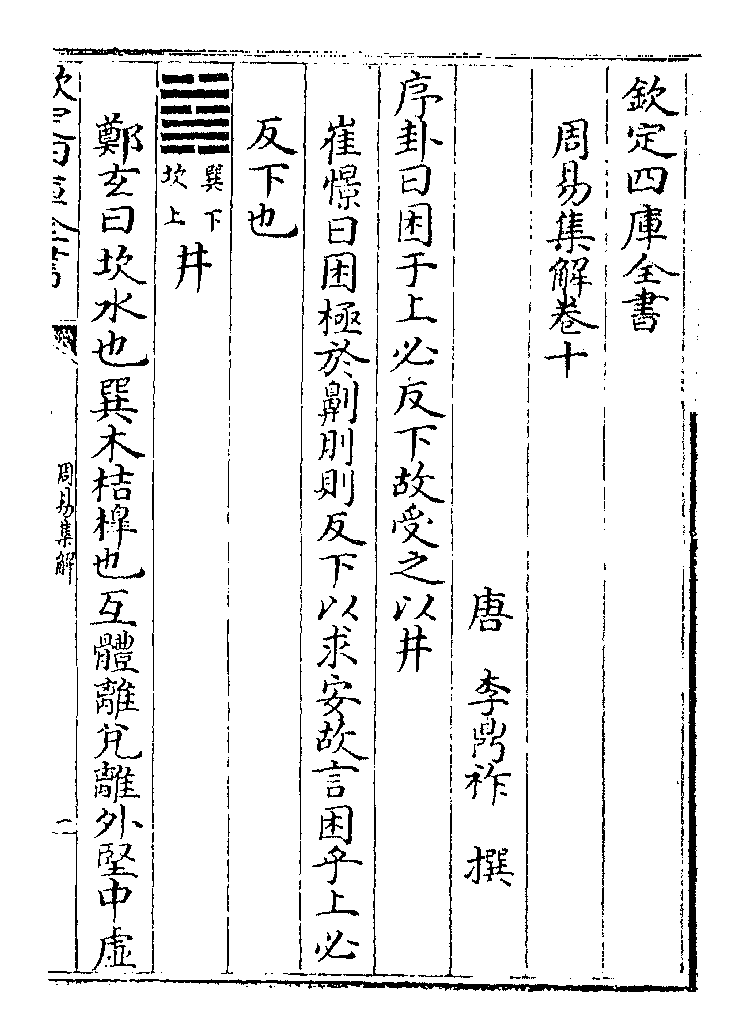 欽定四庫全書
周易集解卷十
唐 李鼎祚 撰
序卦曰困于上必反下故受之以井
崔憬曰困極於劓刖則反下以求安故言困乎上必
反下也
巽下
坎上
井
鄭玄曰坎水也巽木桔橰也互體離兌離外堅中虛
周易集解
一